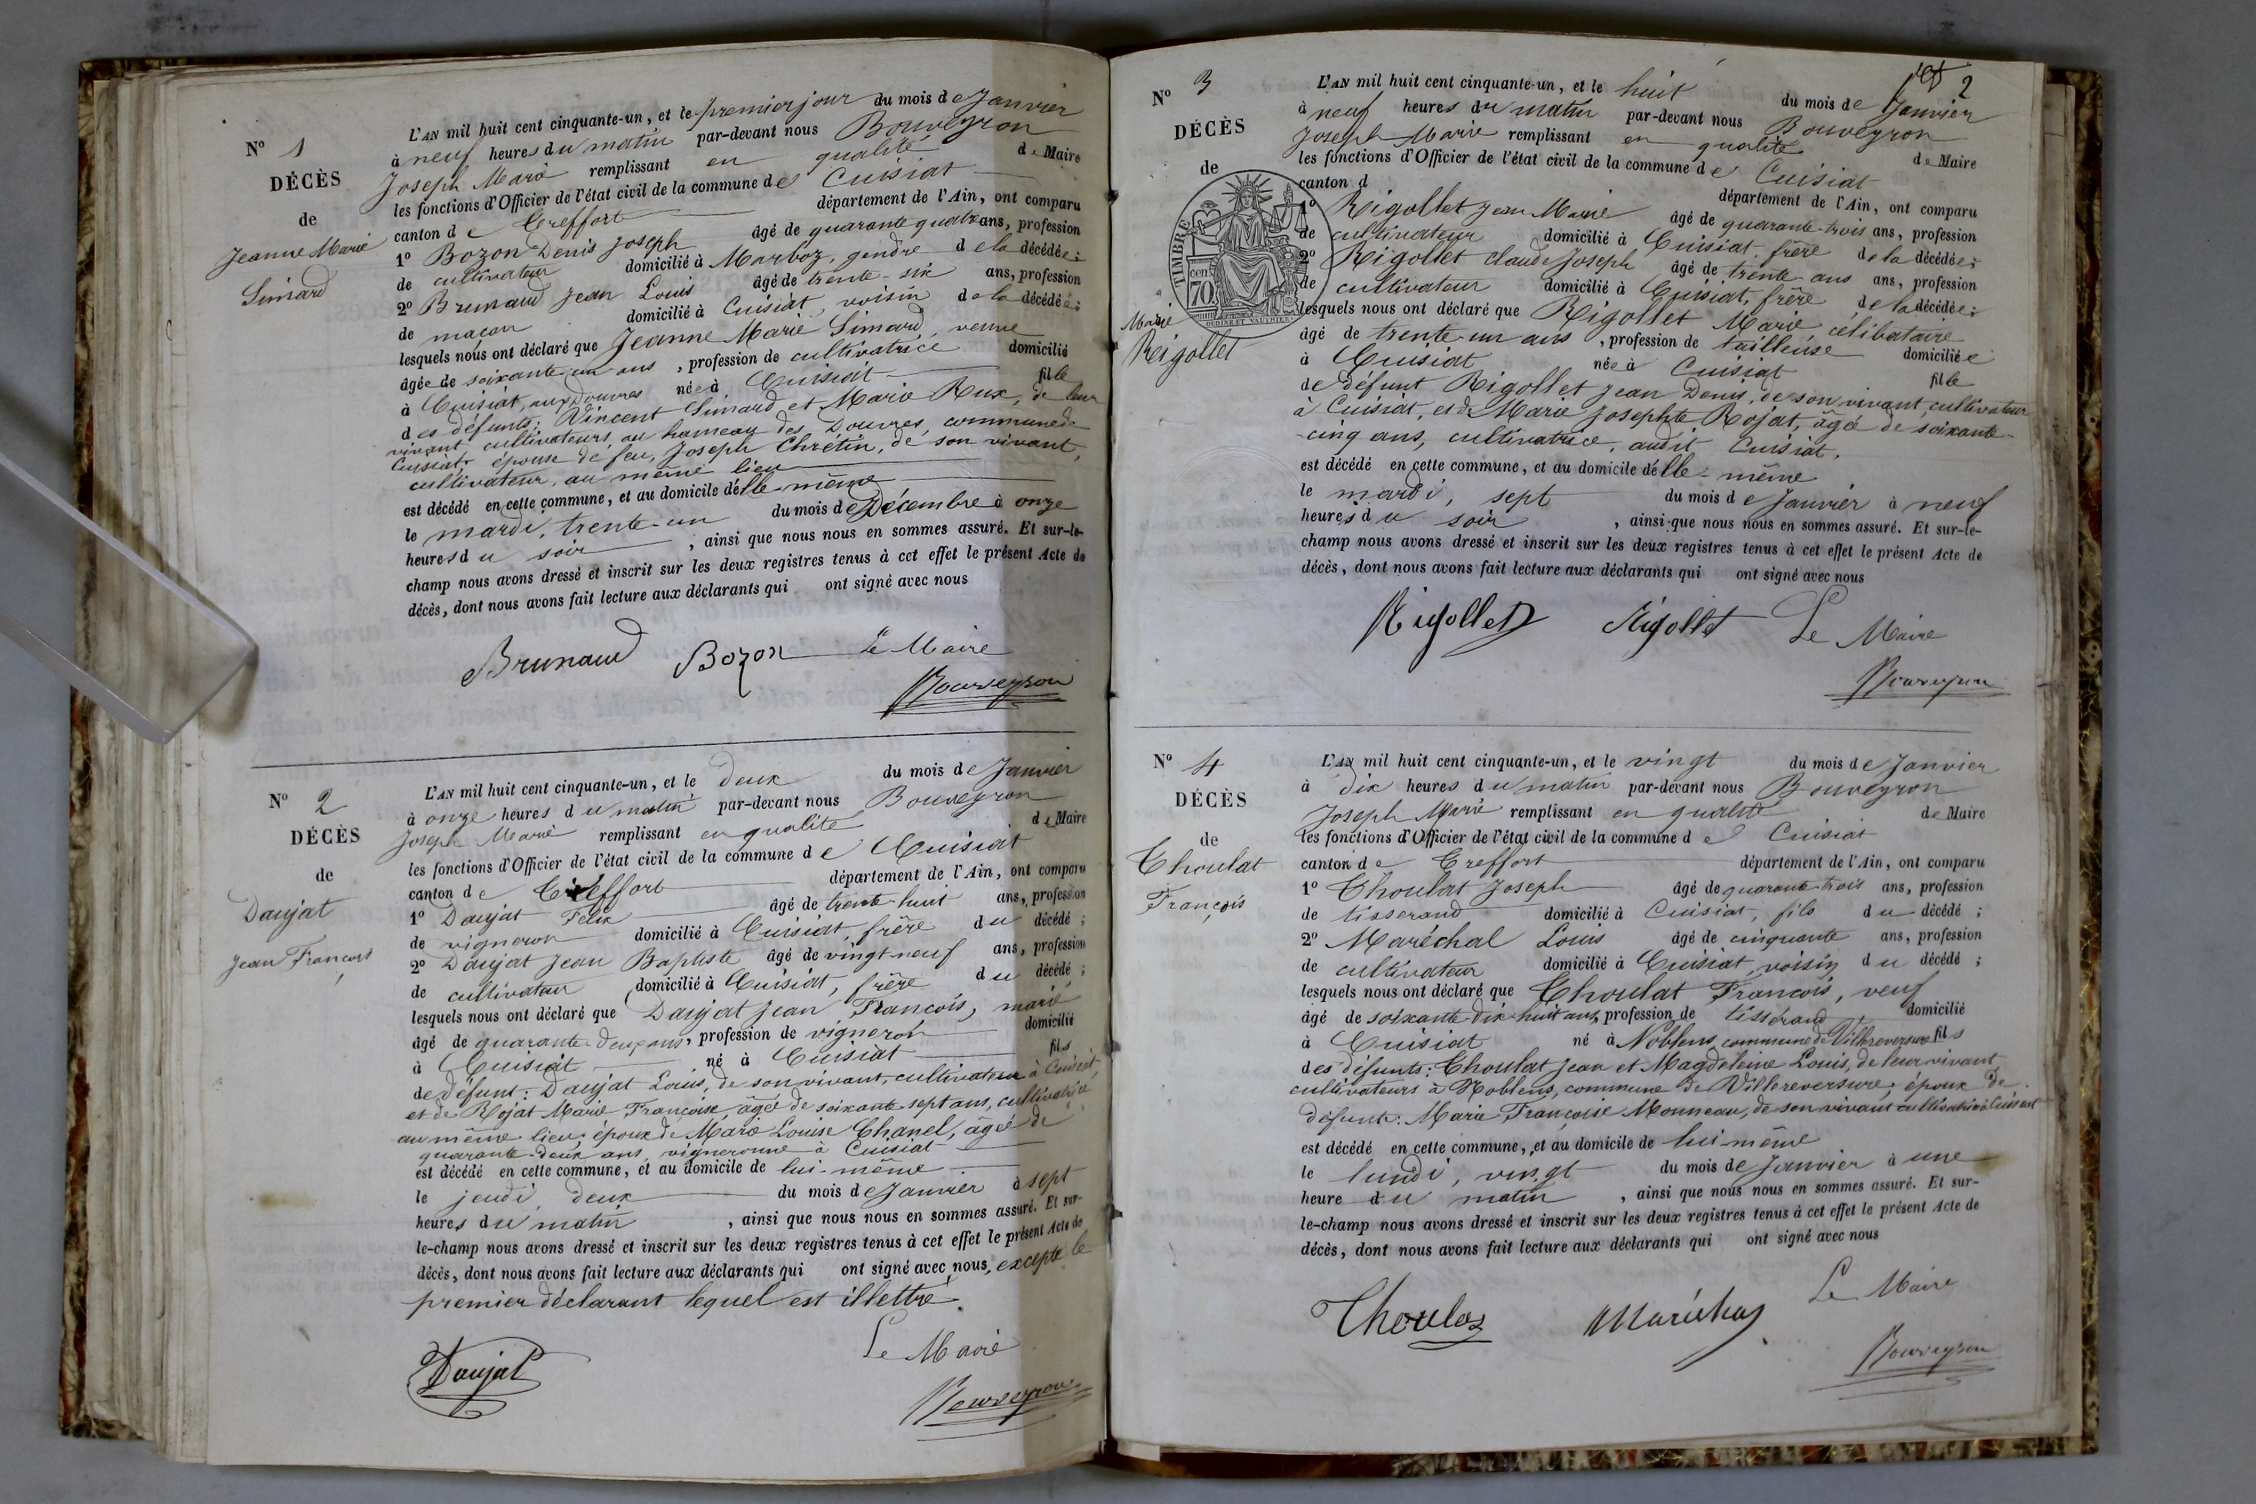 N° 1
DÉCÈS
de
Jeanne Marie
Simard
L'AN mil huit cent cinquante-un, et le premier jour du mois de Janvier
à neuf heures du matin par-devant nous Bouveyron
Joseph Marie remplissant en qualité de Maire
les fonctions d'Officier de l'état civil de la commune de Cuisiat
canton de Treffort département de l'Ain, ont comparu
1° Bozon Denis Joseph âgé de quarante quatre ans, profession
de cultivateur domicilié à Marboz, gendre de la décédée;
2° Brunaud Jean Louis âgé de trente-six ans, profession
de maçon domicilié à Cuisiat, voisin de la décédée;
lesquels nous ont déclaré que Jeanne Marie Simard, veuve
âgée de soixante un ans, profession de cultivatrice domicilié
à Cuisiat, aux Douvres née à Cuisiat fille
des défunts: Vincent Simard et Marie Rux, de leur
vivant cultivateurs, au hameau des Douvres, commune de
Cuisiat, épouse de feu, Joseph Chrétin, de son vivant,
cultivateur, au même lieu
est décédé en cette commune, et au domicile d'elle-même
le mardi, trente-un du mois de Décembre à onze
heures du soir, ainsi que nous nous en sommes assuré. Et sur-le-
champ nous avons dressé et inscrit sur les deux registres tenus à cet effet le présent Acte de
décès, dont nous avons fait lecture aux déclarants qui ont signé avec nous
Brunaud Bozon Le Maire
Bouveyron
N° 2
DÉCÈS
de
Daujat
Jean François
L'AN mil huit cent cinquante-un, et le deux du mois de Janvier
à onze heures du matin par-devant nous Bouveyron
Joseph Marie remplissant en qualité de Maire
les fonctions d'Officier de l'état civil de la commune de Cuisiat
canton de Treffort département de l'Ain, ont comparu
1° Daujat Felix âgé de trente-huit ans, profession
de vigneron domicilié à Cuisiat, frère du décédé;
2° Daujat Jean Baptiste âgé de vingt-neuf ans, profession
de cultivateur domicilié à Cuisiat, frère du décédé;
lesquels nous ont déclaré que Daujat Jean François, marié
âgé de quarante-deux ans, profession de vigneron domicilié
à Cuisiat né à Cuisiat fils
de défunt: Daujat Louis, de son vivant, cultivateur à Cuisiat,
et de Rojat Marie Françoise, âgée de soixante-sept ans, cultivatrice
au même lieu; époux de Marie Louise Chanel, âgée de
quarante-deux ans, vigneronne à Cuisiat
est décédé en cette commune, et au domicile de lui-même
le jeudi, deux du mois de Janvier à sept
heures du matin, ainsi que nous nous en sommes assuré. Et sur-
le-champ nous avons dressé et inscrit sur les deux registres tenus à cet effet le présent Acte de
décès, dont nous avons fait lecture aux déclarants qui ont signé avec nous, excepté le
premier déclarant lequel est illettré.
Le Maire
Daujat
Bouveyron
2
N° 3
DÉCÈS
de
Marie
Rigollet
TIMBRE
70
L'AN mil huit cent cinquante-un, et le huit du mois de Janvier
à neuf heures du matin par-devant nous Bouveyron
Joseph Marie remplissant en qualité de Maire
les fonctions d'Officier de l'état civil de la commune de Cuisiat
canton d département de l'Ain, ont comparu
1° Rigollet Jean Marie âgé de quarante-trois ans, profession
de cultivateur domicilié à Cuisiat, frère de la décédée;
2° Rigollet Claude Joseph âgé de trente ans ans, profession
de cultivateur domicilié à Cuisiat, frère de la décédée;
lesquels nous ont déclaré que Rigollet Marie, célibataire
âgé de trente-un ans, profession de tailleuse domiciliée
à Cuisiat née à Cuisiat fille
de défunt Rigollet Jean Denis, de son vivant, cultivateur
à Cuisiat, et de Marie Josephte Rojat, âgée de soixante-
cinq ans, cultivatrice, audit Cuisiat,
est décédé en cette commune, et au domicile d'elle-même
le mardi, sept du mois de Janvier à neuf
heures du soir, ainsi que nous nous en sommes assuré. Et sur-le-
champ nous avons dressé et inscrit sur les deux registres tenus à cet effet le présent Acte de
décès, dont nous avons fait lecture aux déclarants qui ont signé avec nous
Rigollet Rigollet Le Maire
Bouveyron
N° 4
DÉCÈS
de
Choulat
François
L'AN mil huit cent cinquante-un, et le vingt du mois de Janvier
à dix heures du matin par-devant nous Bouveyron
Joseph Marie remplissant en qualité de Maire
les fonctions d'Officier de l'état civil de la commune de Cuisiat
canton de Treffort département de l'Ain, ont comparu
1° Choulat Joseph âgé de quarante-trois ans, profession
de tisserand domicilié à Cuisiat, fils du décédé;
2° Maréchal Louis âgé de cinquante ans, profession
de cultivateur domicilié à Cuisiat, voisin du décédé;
lesquels nous ont déclaré que Choulat François, veuf
âgé de soixante-dix-huit ans, profession de tisserand domicilié
à Cuisiat né à Noblens, commune de Villereversure fils
des défunts: Choulat Jean et Magdeleine Louis, de leur vivant
cultivateurs à Noblens, commune de Villereversure; époux de
défunte: Marie Françoise Monneau, de son vivant cultivatrice à Cuisiat
est décédé en cette commune, et au domicile de lui-même
le lundi, vingt du mois de Janvier à une
heure du matin, ainsi que nous nous en sommes assuré. Et sur-
le-champ nous avons dressé et inscrit sur les deux registres tenus à cet effet le présent Acte de
décès, dont nous avons fait lecture aux déclarants qui ont signé avec nous
Le Maire
Choulat Maréchal
Bouveyron